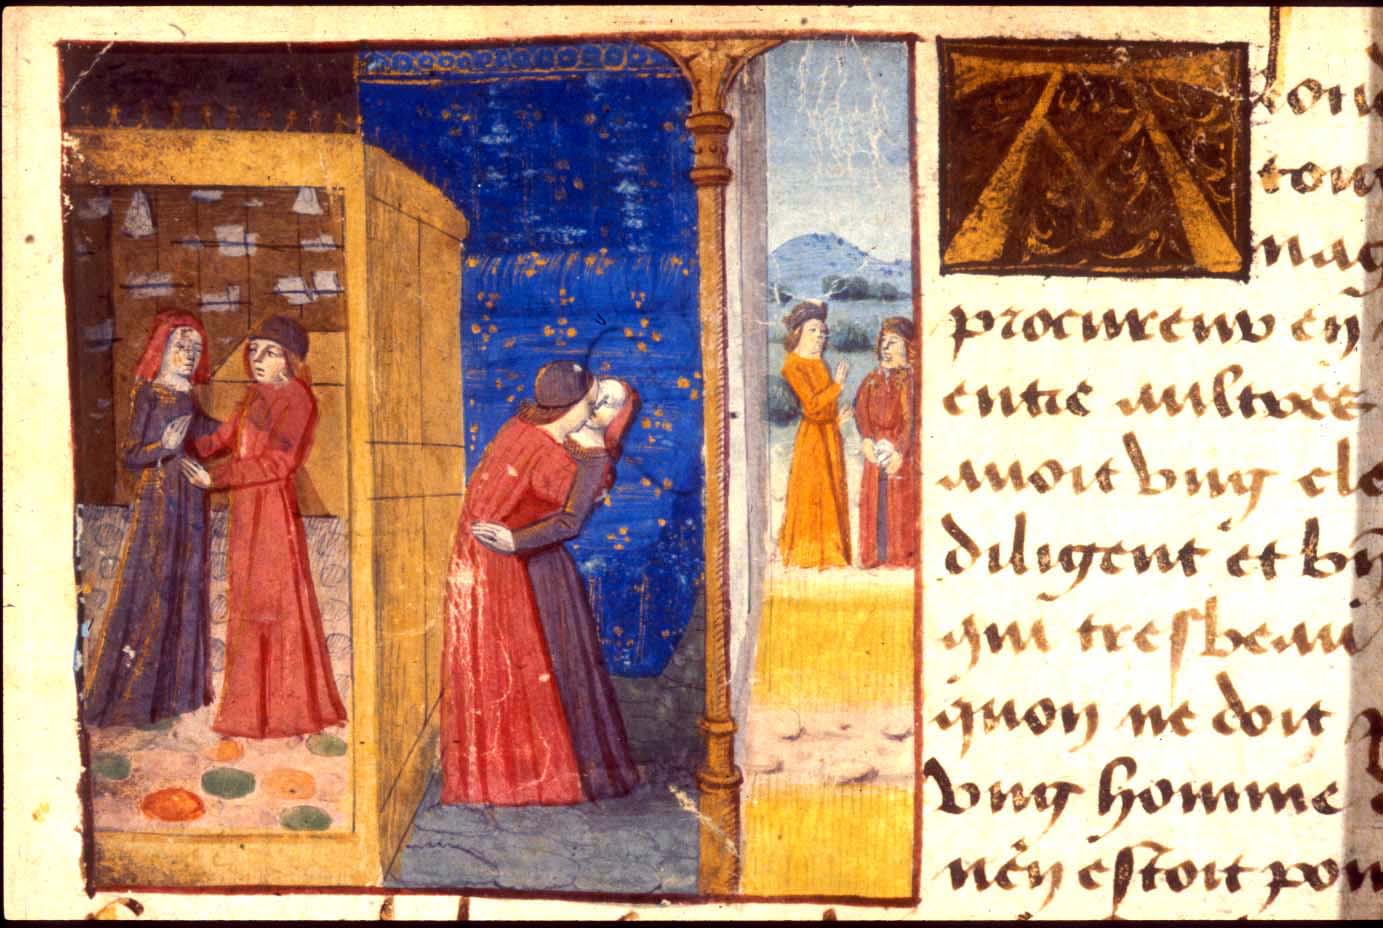 A lon
nag
procureur en
entre aultres
auoit vng cle
diligent et bi
qui tresbeau
quon ne doit
vng homme
nen estoit poi